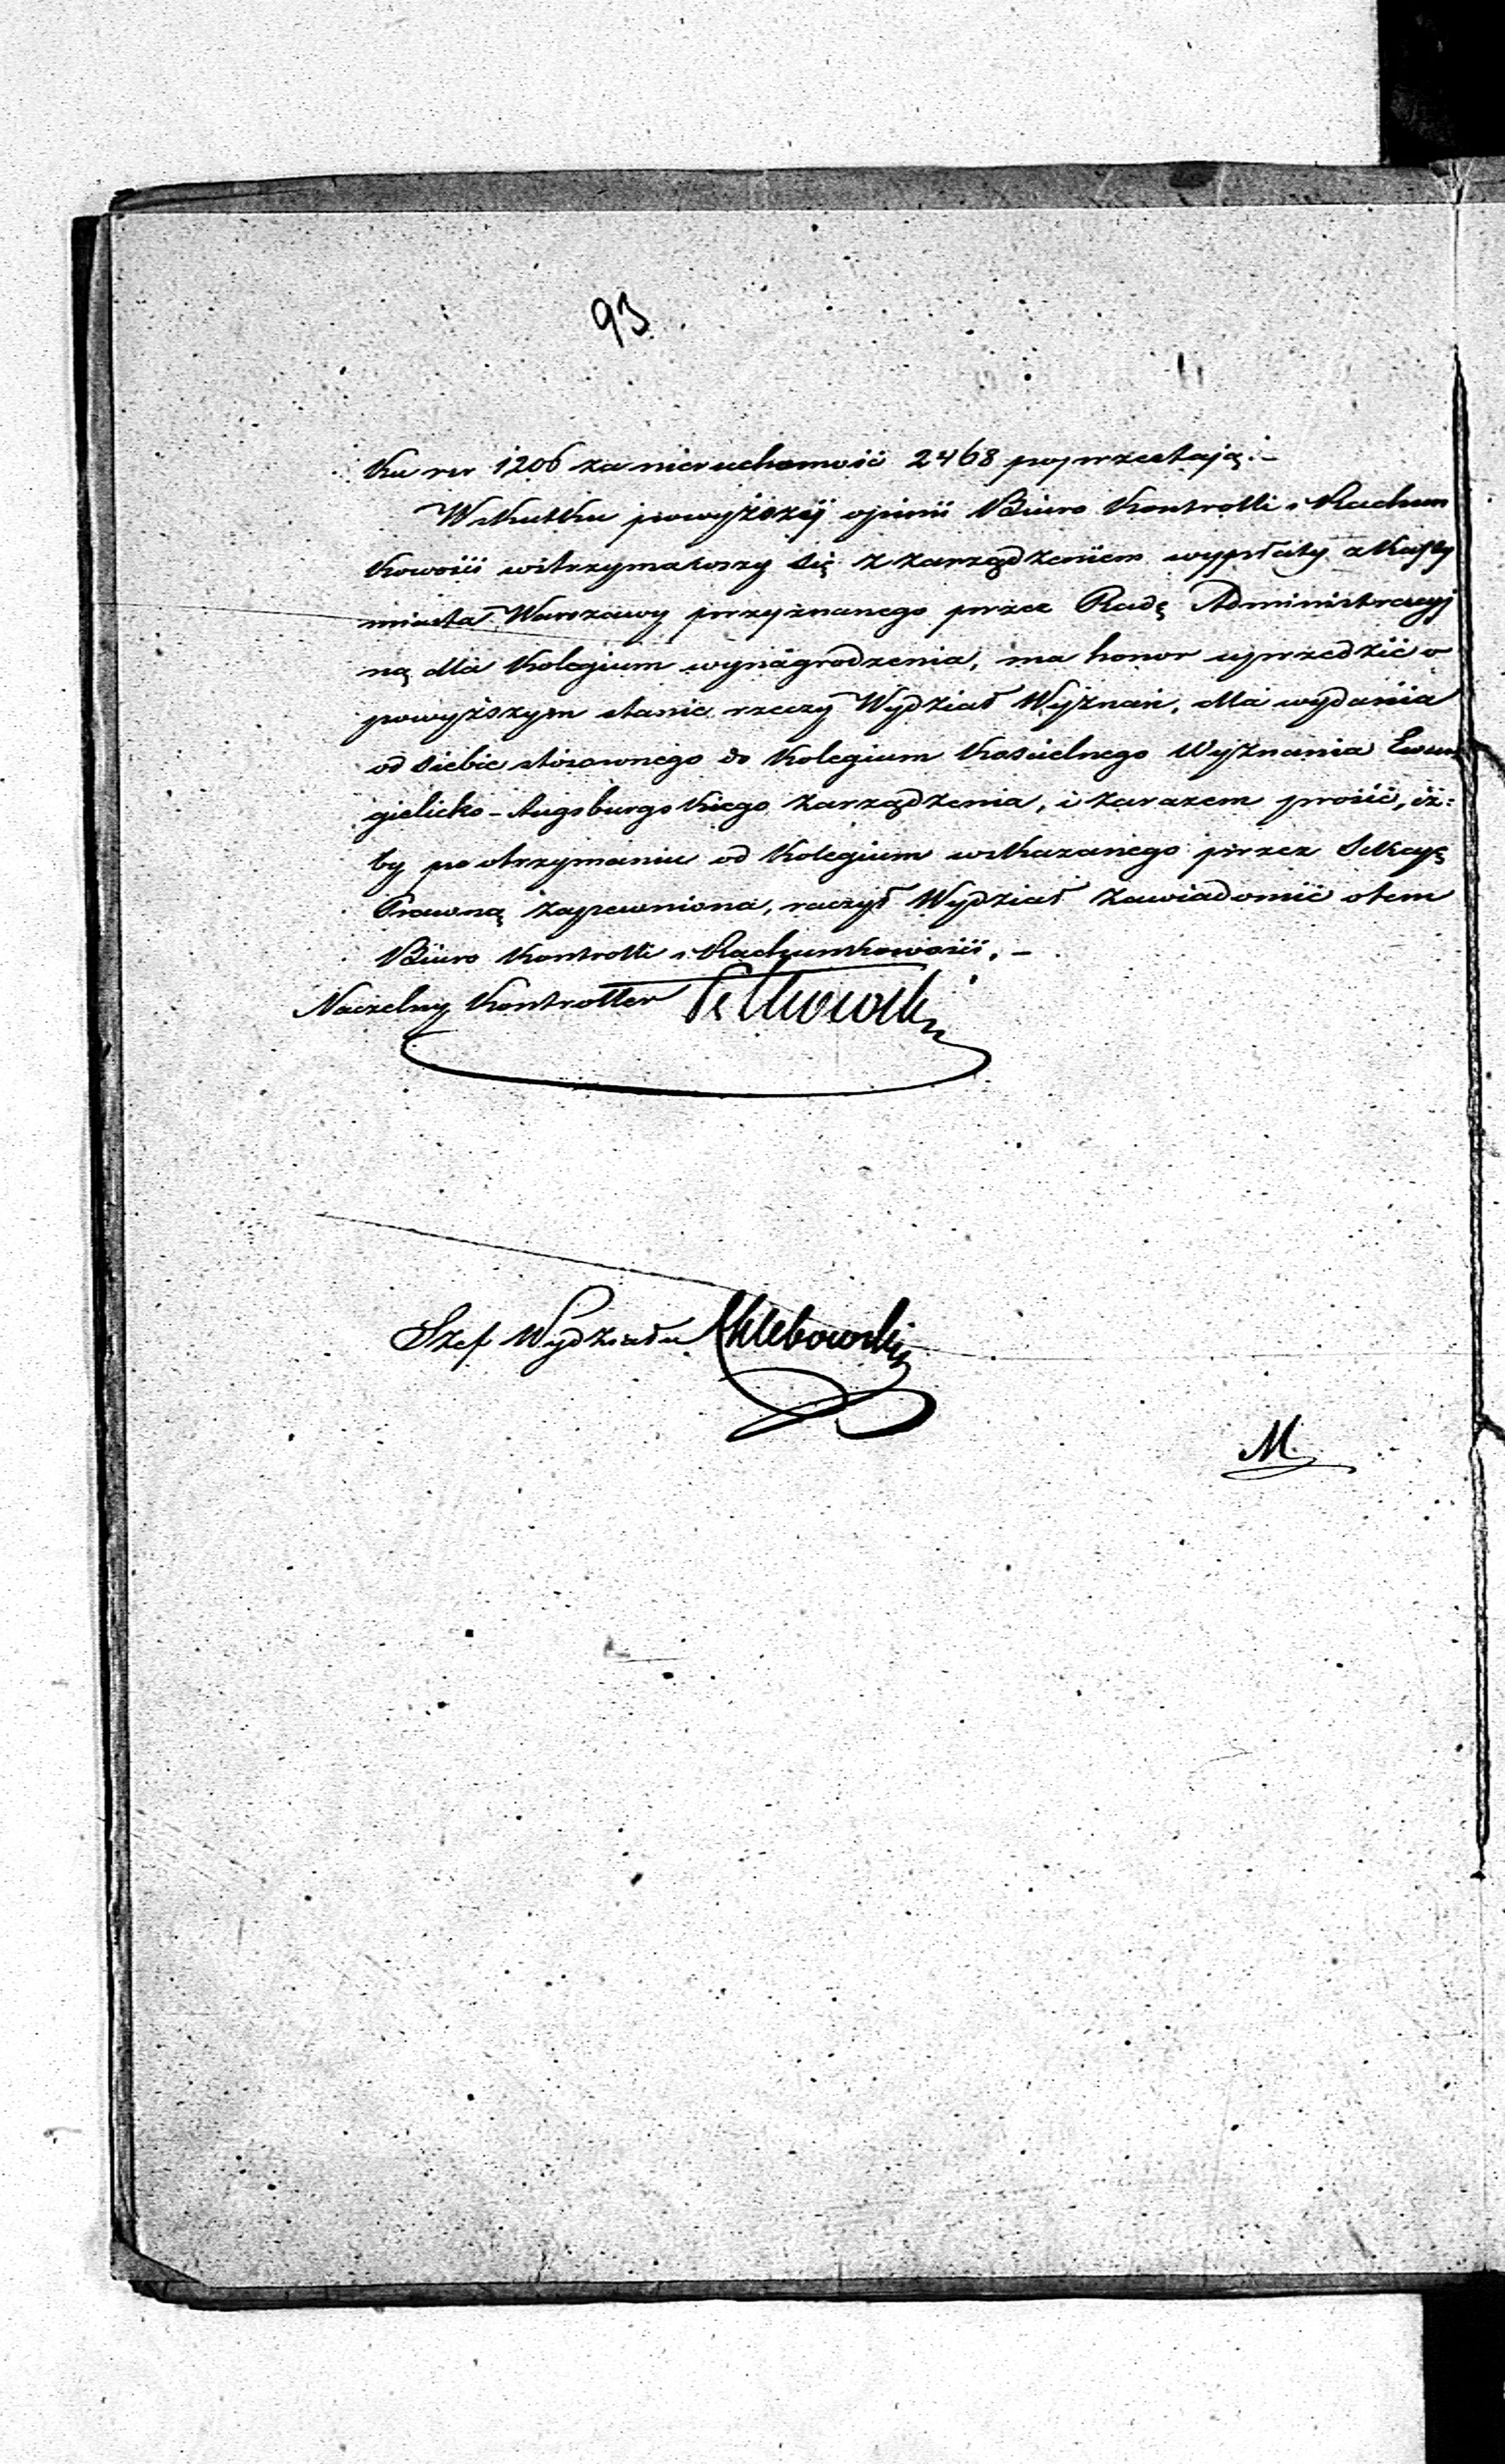 93.
Ku rsr 1206 za nieruchomość 2468 poprzestają.–
Wskutku powyższéj opinii Biuro Kontrolli i Rachun
kowości wstrzymawszy się z zarządzeniem wypłaty z Kassy
miasta Warszawy przyznanego przez Radę Administracyj
ną dla Kolegium wynagrodzenia, ma honor uprzedzić o
powyższym stanie rzeczy Wydział Wyznań, dla wydania
od siebie stosownego do Kolegium Kościelnego Wyznania Ewan
gielicko-Augsburgskiego zarządzenia, i zarazem prosić, iż=
by po otrzymaniu od Kolegium wskazanego przez Sekcyę
Prawną zapewnienia, raczył Wydział zawiadomić o tem
Biuro Kontrolli i Rachunkowości.–
Naczelny Kontroller
Szef Wydziału
M.